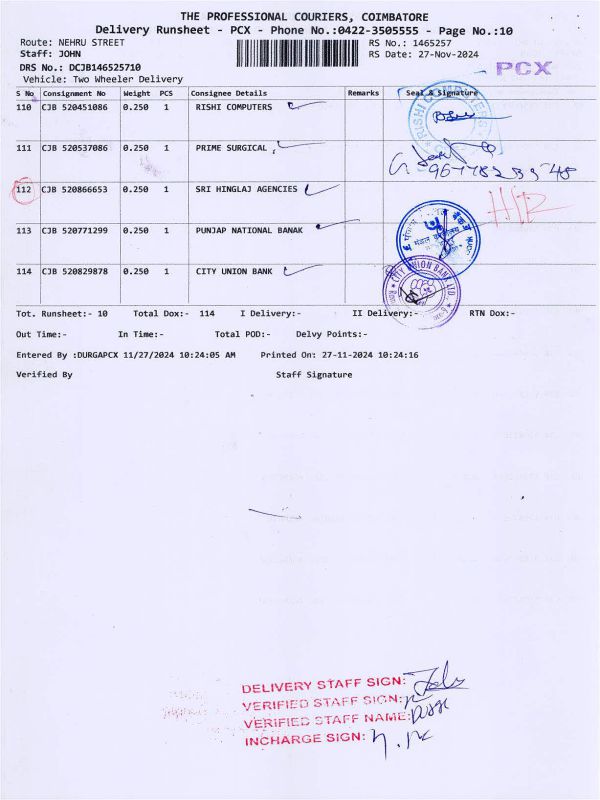 THE PROFESSIONAL COURIERS, COIMBATORE
Delivery Runsheet - PCX - Phone No.:0422-3505555 - Page No.:10
Route: NEHRU STREET
RS No.: 1465257
Staff: JOHN
RS Date: 27-Nov-2024
DRS No.: DCJB146525710
PCX
Vehicle: Two Wheeler Delivery
S No Consignment No Weight PCS Consignee Details Remarks Seal & Signature
110 CJB 520451086 0.250 1 RISHI COMPUTERS
RISHI COMPUTERS
111 CJB 520537086 0.250 1 PRIME SURGICAL
112 CJB 520866653 0.250 1 SRI HINGLAJ AGENCIES
113 CJB 520771299 0.250 1 PUNJAP NATIONAL BANAK
114 CJB 520829878 0.250 1 CITY UNION BANK
CITY UNION BANK LTD
Tot. Runsheet:- 10 Total Dox:- 114 I Delivery:- II Delivery:- RTN Dox:-
Out Time:- In Time:- Total POD:- Delvy Points:-
Entered By :DURGAPCX 11/27/2024 10:24:05 AM Printed On: 27-11-2024 10:24:16
Verified By Staff Signature
DELIVERY STAFF SIGN:
VERIFIED STAFF SIGN:
VERIFIED STAFF NAME:
INCHARGE SIGN: